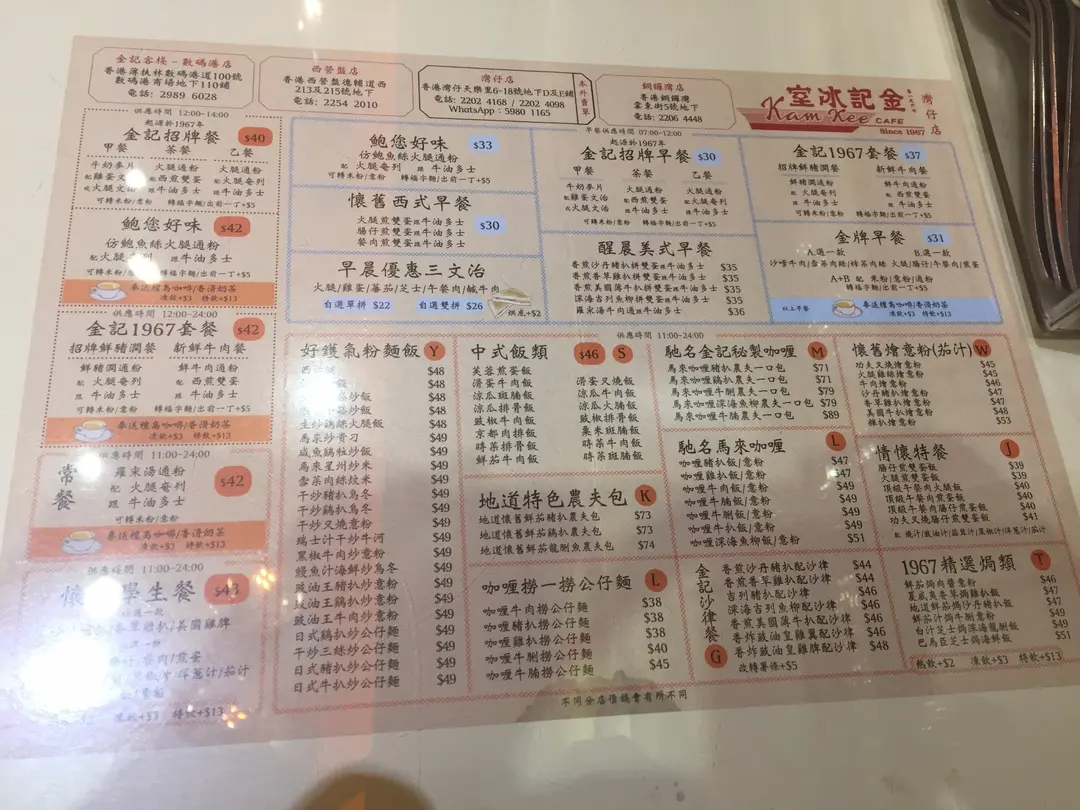 金記客棧 – 數碼港店
香港薄扶林數碼港道100號
數碼港商場地下110鋪
電話: 2989 6028
西營盤店
香港西營盤德輔道西
213及215號地下
電話: 2254 2010
灣仔店
香港灣仔天樂里6-18號地下D及E鋪
電話: 2202 4168 / 2202 4098
WhatsApp: 5980 1165
本外賣單
銅鑼灣店
香港銅鑼灣
霎東街5號地下
電話: 2206 4448
室冰記金
Kam Kee CAFE
Since 1967
灣仔店
供應時間 12:00-14:00
起源於1967年
金記招牌餐 $40
甲餐 茶餐 乙餐
牛奶麥片 火腿通粉 火腿通粉
配 雞蛋文治 配 西煎雙蛋 配 火腿奄列
或 火腿文治 跟 牛油多士 跟 牛油多士
可轉米粉/意粉 轉福字麵/出前一丁+$5
鮑您好味 $42
仿鮑魚絲火腿通粉
牛油多士
轉福字麵/出前一丁+$5
奉送檀島咖啡/香滑奶茶
凍飲+$3 特飲+$13
供應時間 12:00-24:00
金記1967套餐 $42
招牌鮮豬潤餐 新鮮牛肉餐
鮮豬潤通粉 鮮牛肉通粉
配 火腿奄列 配 西煎雙蛋
跟 牛油多士 跟 牛油多士
可轉米粉/意粉 轉福字麵/出前一丁+$5
奉送檀島咖啡/香滑奶茶
凍飲+$3 特飲+$13
供應時間 11:00-24:00
常餐
羅宋湯通粉 $42
配 火腿奄列
跟 牛油多士
可轉米粉/意粉
奉送檀島咖啡/香滑奶茶
凍飲+$3 特飲+$13
供應時間 11:00-24:00
學生餐
凍飲+$3 特飲+$13
鮑您好味 $33
仿鮑魚絲火腿通粉
配 火腿奄列 跟 牛油多士
可轉米粉/意粉 轉福字麵/出前一丁+$5
懷舊西式早餐
火腿煎雙蛋跟牛油多士
腸仔煎雙蛋跟牛油多士 $30
餐肉煎雙蛋跟牛油多士
早晨優惠三文治
火腿/雞蛋/蕃茄/芝士/午餐肉/鹹牛肉
自選單拼 $22 自選雙拼 $26
烘底+$2
早餐供應時間 07:00-12:00
起源於1967年
金記招牌早餐 $30
甲餐 茶餐 乙餐
牛奶麥片 火腿通粉 火腿通粉
配 雞蛋文治 配 西煎雙蛋 配 火腿奄列
或 火腿文治 跟 牛油多士 跟 牛油多士
可轉米粉/意粉 轉福字麵/出前一丁+$5
醒晨美式早餐
香煎沙丹豬扒拼雙蛋跟牛油多士 $35
香煎香草雞扒拼雙蛋跟牛油多士 $35
香煎美國薄牛扒拼雙蛋跟牛油多士 $35
深海吉列魚柳拼雙蛋跟牛油多士 $35
羅宋湯牛肉通跟牛油多士 $36
金記1967套餐 $37
招牌鮮豬潤餐 新鮮牛肉餐
鮮豬潤通粉 鮮牛肉通粉
配 火腿奄列 配 西煎雙蛋
跟 牛油多士 跟 牛油多士
可轉米粉/意粉 轉福字麵/出前一丁+$5
金牌早餐 $31
A.選一款 B.選一款
沙嗲牛肉/雪菜肉絲/榨菜肉絲 火腿/腸仔/午餐肉/煎蛋
A+B 配 米粉/意粉/通粉
轉福字麵/出前一丁+$5
以上早餐
奉送檀島咖啡/香滑奶茶
凍飲+$3 特飲+$13
供應時間 11:00-24:00
好鑊氣粉麵飯 Y
$48
$48
$48
$48
生炒鷄絲火腿飯 $49
馬來炒貴刁 $49
咸魚鷄粒炒飯 $49
馬來星州炒米 $49
雪菜肉絲炆米 $49
干炒豬扒烏冬 $49
干炒鷄扒烏冬 $49
干炒叉燒意粉 $49
瑞士汁干炒牛河 $49
黑椒牛肉炒意粉 $49
鰻魚汁海鮮炒烏冬 $49
豉油王豬扒炒意粉 $49
豉油王鷄扒炒意粉 $49
豉油王牛肉炒意粉 $49
日式鷄扒炒公仔麵 $49
干炒三絲炒公仔麵 $49
日式豬扒炒公仔麵 $49
日式牛扒炒公仔麵 $49
中式飯類 $46 S
芙蓉煎蛋飯 滑蛋叉燒飯
滑蛋牛肉飯 涼瓜牛肉飯
涼瓜斑腩飯 涼瓜火腩飯
涼瓜排骨飯 豉椒排骨飯
豉椒牛肉飯 粟米斑腩飯
京都肉排飯 時菜牛肉飯
時菜排骨飯 時菜斑腩飯
鮮茄牛肉飯
地道特色農夫包 K
地道懷舊鮮茄豬扒農夫包 $73
地道懷舊鮮茄鷄扒農夫包 $73
地道懷舊鮮茄龍脷魚農夫包 $74
咖喱撈一撈公仔麵 L
咖喱牛肉撈公仔麵 $38
咖喱豬扒撈公仔麵 $38
咖喱雞扒撈公仔麵 $38
咖喱牛脷撈公仔麵 $40
咖喱牛腩撈公仔麵 $45
馳名金記秘製咖喱 M
馬來咖喱豬扒農夫一口包 $71
馬來咖喱鷄扒農夫一口包 $71
馬來咖喱牛脷農夫一口包 $79
馬來咖喱深海魚柳農夫一口包 $79
馬來咖喱牛腩農夫一口包 $89
馳名馬來咖喱 L
咖喱豬扒飯/意粉 $47
咖喱雞扒飯/意粉 $47
咖喱牛肉飯/意粉 $49
咖喱牛脷飯/意粉 $49
咖喱牛扒飯/意粉 $49
咖喱深海魚飯/意粉 $51
金記沙律餐 G
香煎沙丹豬扒配沙律 $44
香煎香草雞扒配沙律 $44
吉列豬扒配沙律 $46
深海吉列魚柳配沙律 $46
香煎美國薄牛扒配沙律 $46
香炸豉油皇雞翼配沙律 $46
香炸豉油皇雞脾配沙律 $48
改轉薯條+$5
懷舊燴意粉(茄汁) W
功夫叉燒燴意粉 $45
火腿雞絲燴意粉 $45
牛肉燴意粉 $46
沙丹豬扒燴意粉 $47
香草雞扒燴意粉 $47
美國牛扒燴意粉 $48
雜扒燴意粉 $53
情懷特餐 J
腸仔煎雙蛋飯 $39
火腿煎雙蛋飯 $39
頂級午餐肉火腿飯 $40
頂級午餐肉腸仔煎蛋飯 $40
功夫叉燒腸仔煎雙蛋飯 $41
配 燒汁/豉油汁/蒜茸汁/黑椒汁/洋蔥汁/茄汁
1967精選焗類 T
鮮茄焗肉醬意粉 $46
夏威夷香芋焗雞扒飯 $47
地道鮮茄焗沙丹豬扒飯 $47
鮮茄汁焗牛脷意粉 $49
白汁芝士焗深海龍脷飯 $49
巴馬臣芝士焗海鮮飯 $51
熱飲+$2 凍飲+$3 特飲+$13
不同分店價錢會有所不同